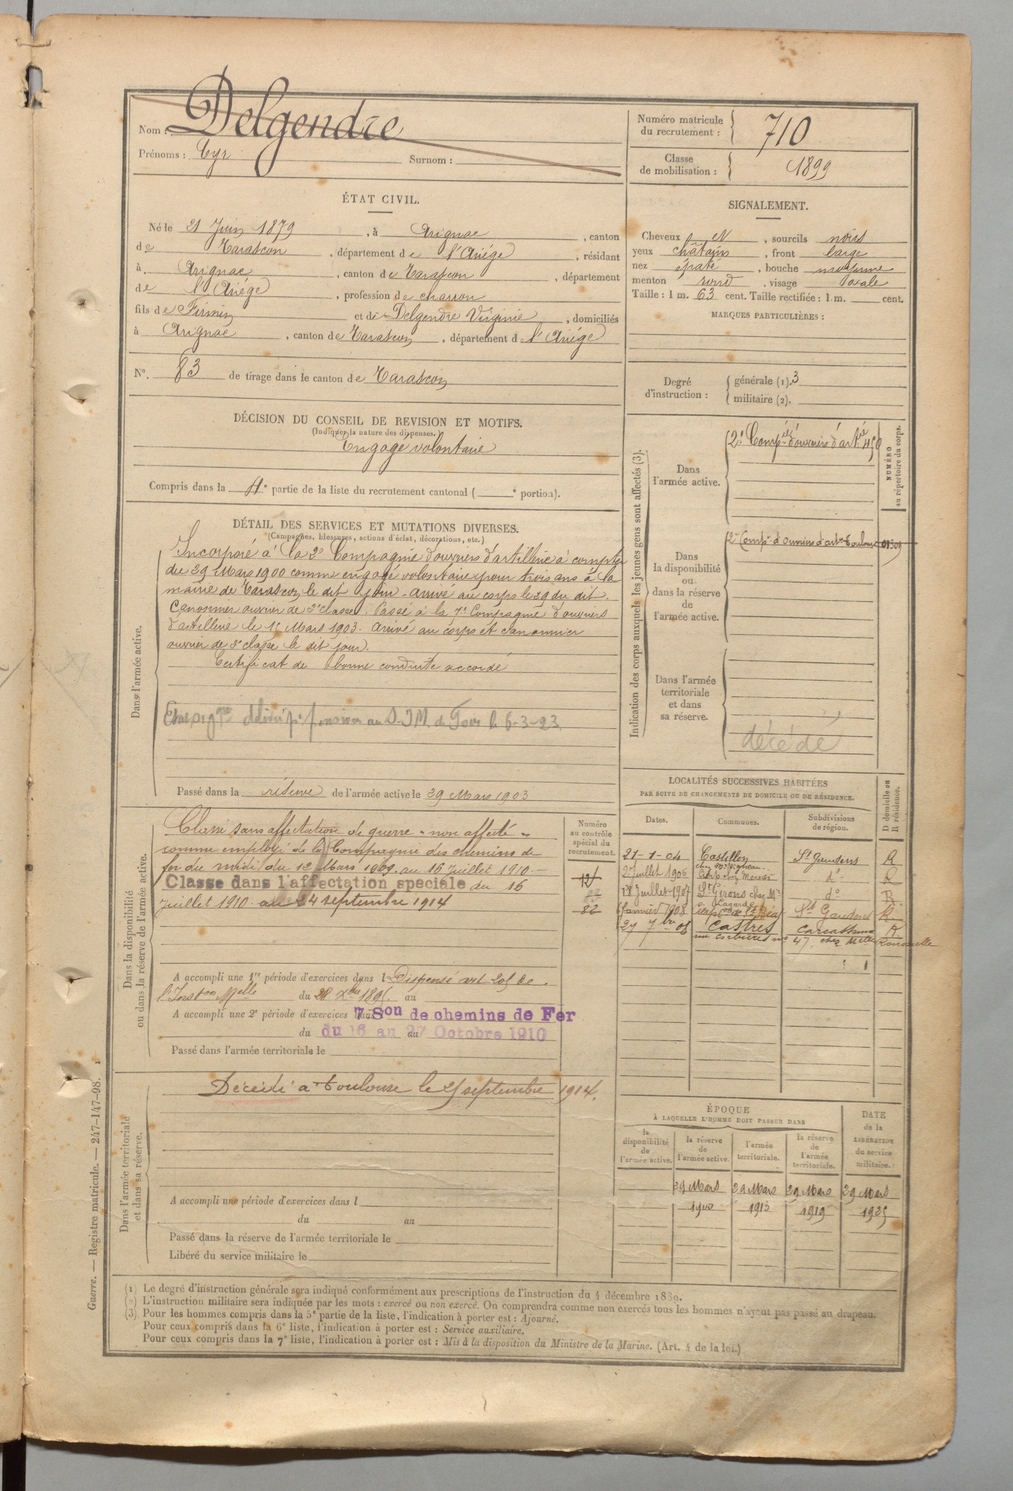 Nom : Delgendre
Prénoms : Cyr Surnom :
Numéro matricule du recrutement : 710
Classe de mobilisation : 1899
ÉTAT CIVIL.
Né le 21 Juin 1879, à Arignac, canton
de Tarascon, département de l'Ariège, résidant
à Arignac, canton de Tarascon, département
de l'Ariège, profession de charron
fils de Firmin et de Delgendre Virginie, domiciliés
à Arignac, canton de Tarascon, département de l'Ariège
N°. 83 de tirage dans le canton de Tarascon
SIGNALEMENT.
Cheveux N, sourcils noirs
yeux châtains, front large
nez épaté, bouche moyenne
menton rond, visage ovale
Taille : 1 m. 63 cent. Taille rectifiée : 1 m. cent.
MARQUES PARTICULIÈRES :
Degré d'instruction : générale (1). 3
militaire (2).
DÉCISION DU CONSEIL DE REVISION ET MOTIFS.
(Indiquer la nature des dispenses.)
Engagé volontaire
Compris dans la 4e partie de la liste du recrutement cantonal ( e portion).
DÉTAIL DES SERVICES ET MUTATIONS DIVERSES.
(Campagnes, blessures, actions d'éclat, décorations, etc.)
Dans l'armée active.
Incorporé à la 2e Compagnie d'ouvriers d'artillerie à compter
du 29 Mars 1900 comme engagé volontaire pour trois ans à la
mairie de Tarascon le dit jour. Arrivé au corps le 29 du dit.
Canonnier ouvrier de 2e classe. Passé à la 7e Compagnie d'ouvriers
d'artillerie le 1er Mars 1903. Arrivé au corps et canonnier
ouvrier de 2e classe le dit jour.
Certificat de bonne conduite accordé
pension au S.I.M. de Foix le 6-3-23
Passé dans la réserve de l'armée active le 29 Mars 1903
Indication des corps auxquels les jeunes gens sont affectés (3).
NUMÉRO au répertoire du corps.
Dans l'armée active.
2e Compie d'ouvriers d'artie
Dans la disponibilité ou dans la réserve de l'armée active.
2e Compie d'ouvriers d'artie Toulouse
Dans l'armée territoriale et dans sa réserve.
décédé
Dans la disponibilité ou dans la réserve de l'armée active.
Classé sans affectation de guerre "non affecté"
comme employé de la Compagnie des chemins de
fer du midi du 12 Mars 1909 au 15 juillet 1910 -
Classe dans l'affectation spéciale du 16
juillet 1910 au 4 septembre 1914
A accompli une 1re période d'exercices dans l Dispensé art 205 de
l'Inston Mlle du 28 Xbre 1895 au
A accompli une 2e période d'exercices dans 7 Son de chemins de Fer
du 16 au 27 Octobre 1910
Passé dans l'armée territoriale le
Numéro au contrôle spécial du recrutement.
LOCALITÉS SUCCESSIVES HABITÉES
PAR SUITE DE CHANGEMENTS DE DOMICILE OU DE RÉSIDENCE.
Dates. Communes. Subdivisions de région. D domicile ou R résidence.
21-1-04 Castillon St Gaudens R
27 7bre 08 Castres Carcassonne R
Dans l'armée territoriale et dans sa réserve.
Décédé à Toulouse le 4 septembre 1914.
A accompli une période d'exercices dans l
du au
Passé dans la réserve de l'armée territoriale le
Libéré du service militaire le
ÉPOQUE
À LAQUELLE L'HOMME DOIT PASSER DANS
la disponibilité de l'armée active. la réserve de l'armée active. l'armée territoriale. la réserve de l'armée territoriale.
DATE de la LIBÉRATION du service militaire.
29 Mars 29 Mars 29 Mars 29 Mars
1913 1919 1925
(1) Le degré d'instruction générale sera indiqué conformément aux prescriptions de l'instruction du 4 décembre 1889.
(2) L'instruction militaire sera indiquée par les mots : exercé ou non exercé. On comprendra comme non exercés tous les hommes n'ayant pas passé au drapeau.
(3) Pour les hommes compris dans la 5e partie de la liste, l'indication à porter est : Ajourné.
Pour ceux compris dans la 6e liste, l'indication à porter est : Service auxiliaire.
Pour ceux compris dans la 7e liste, l'indication à porter est : Mis à la disposition du Ministre de la Marine. (Art. 4 de la loi.)
Guerre. — Registre matricule. — 247-147-98.